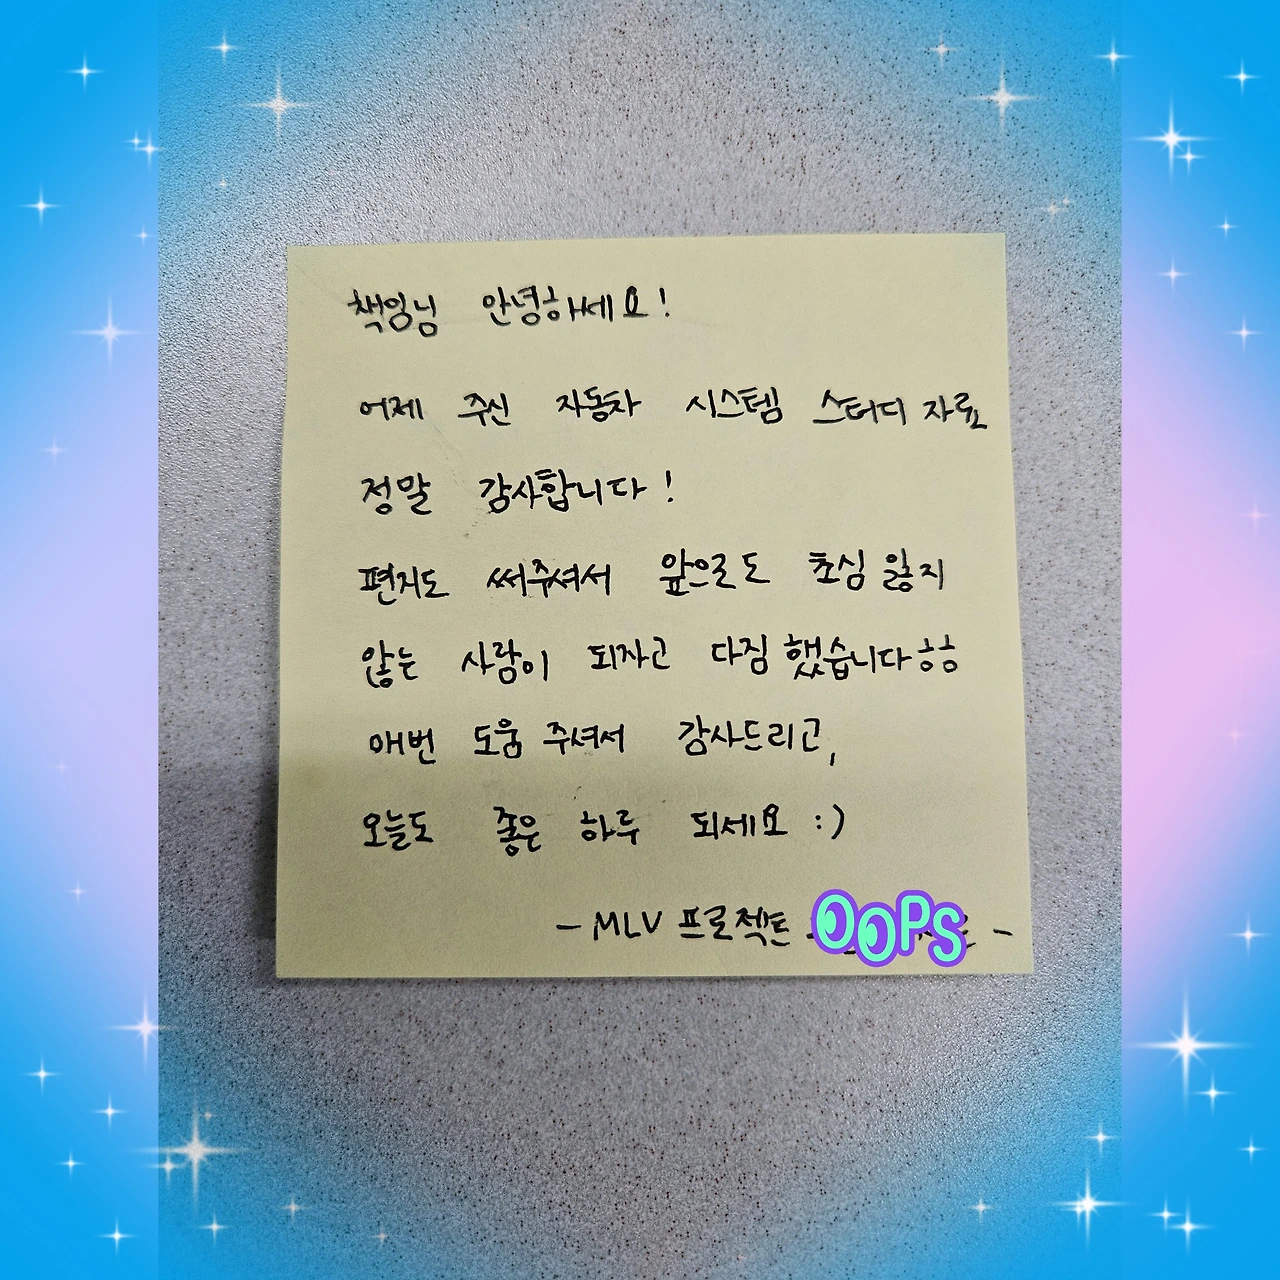 책임님 안녕하세요!
어제 주신 자동차 시스템 스터디 자료
정말 감사합니다!
편지도 써주셔서 앞으로도 초심 잃지
않는 사람이 되자고 다짐했습니다ㅎㅎ
매번 도움 주셔서 감사드리고,
오늘도 좋은 하루 되세요 :)
- MLV 프로젝트 OOPS -